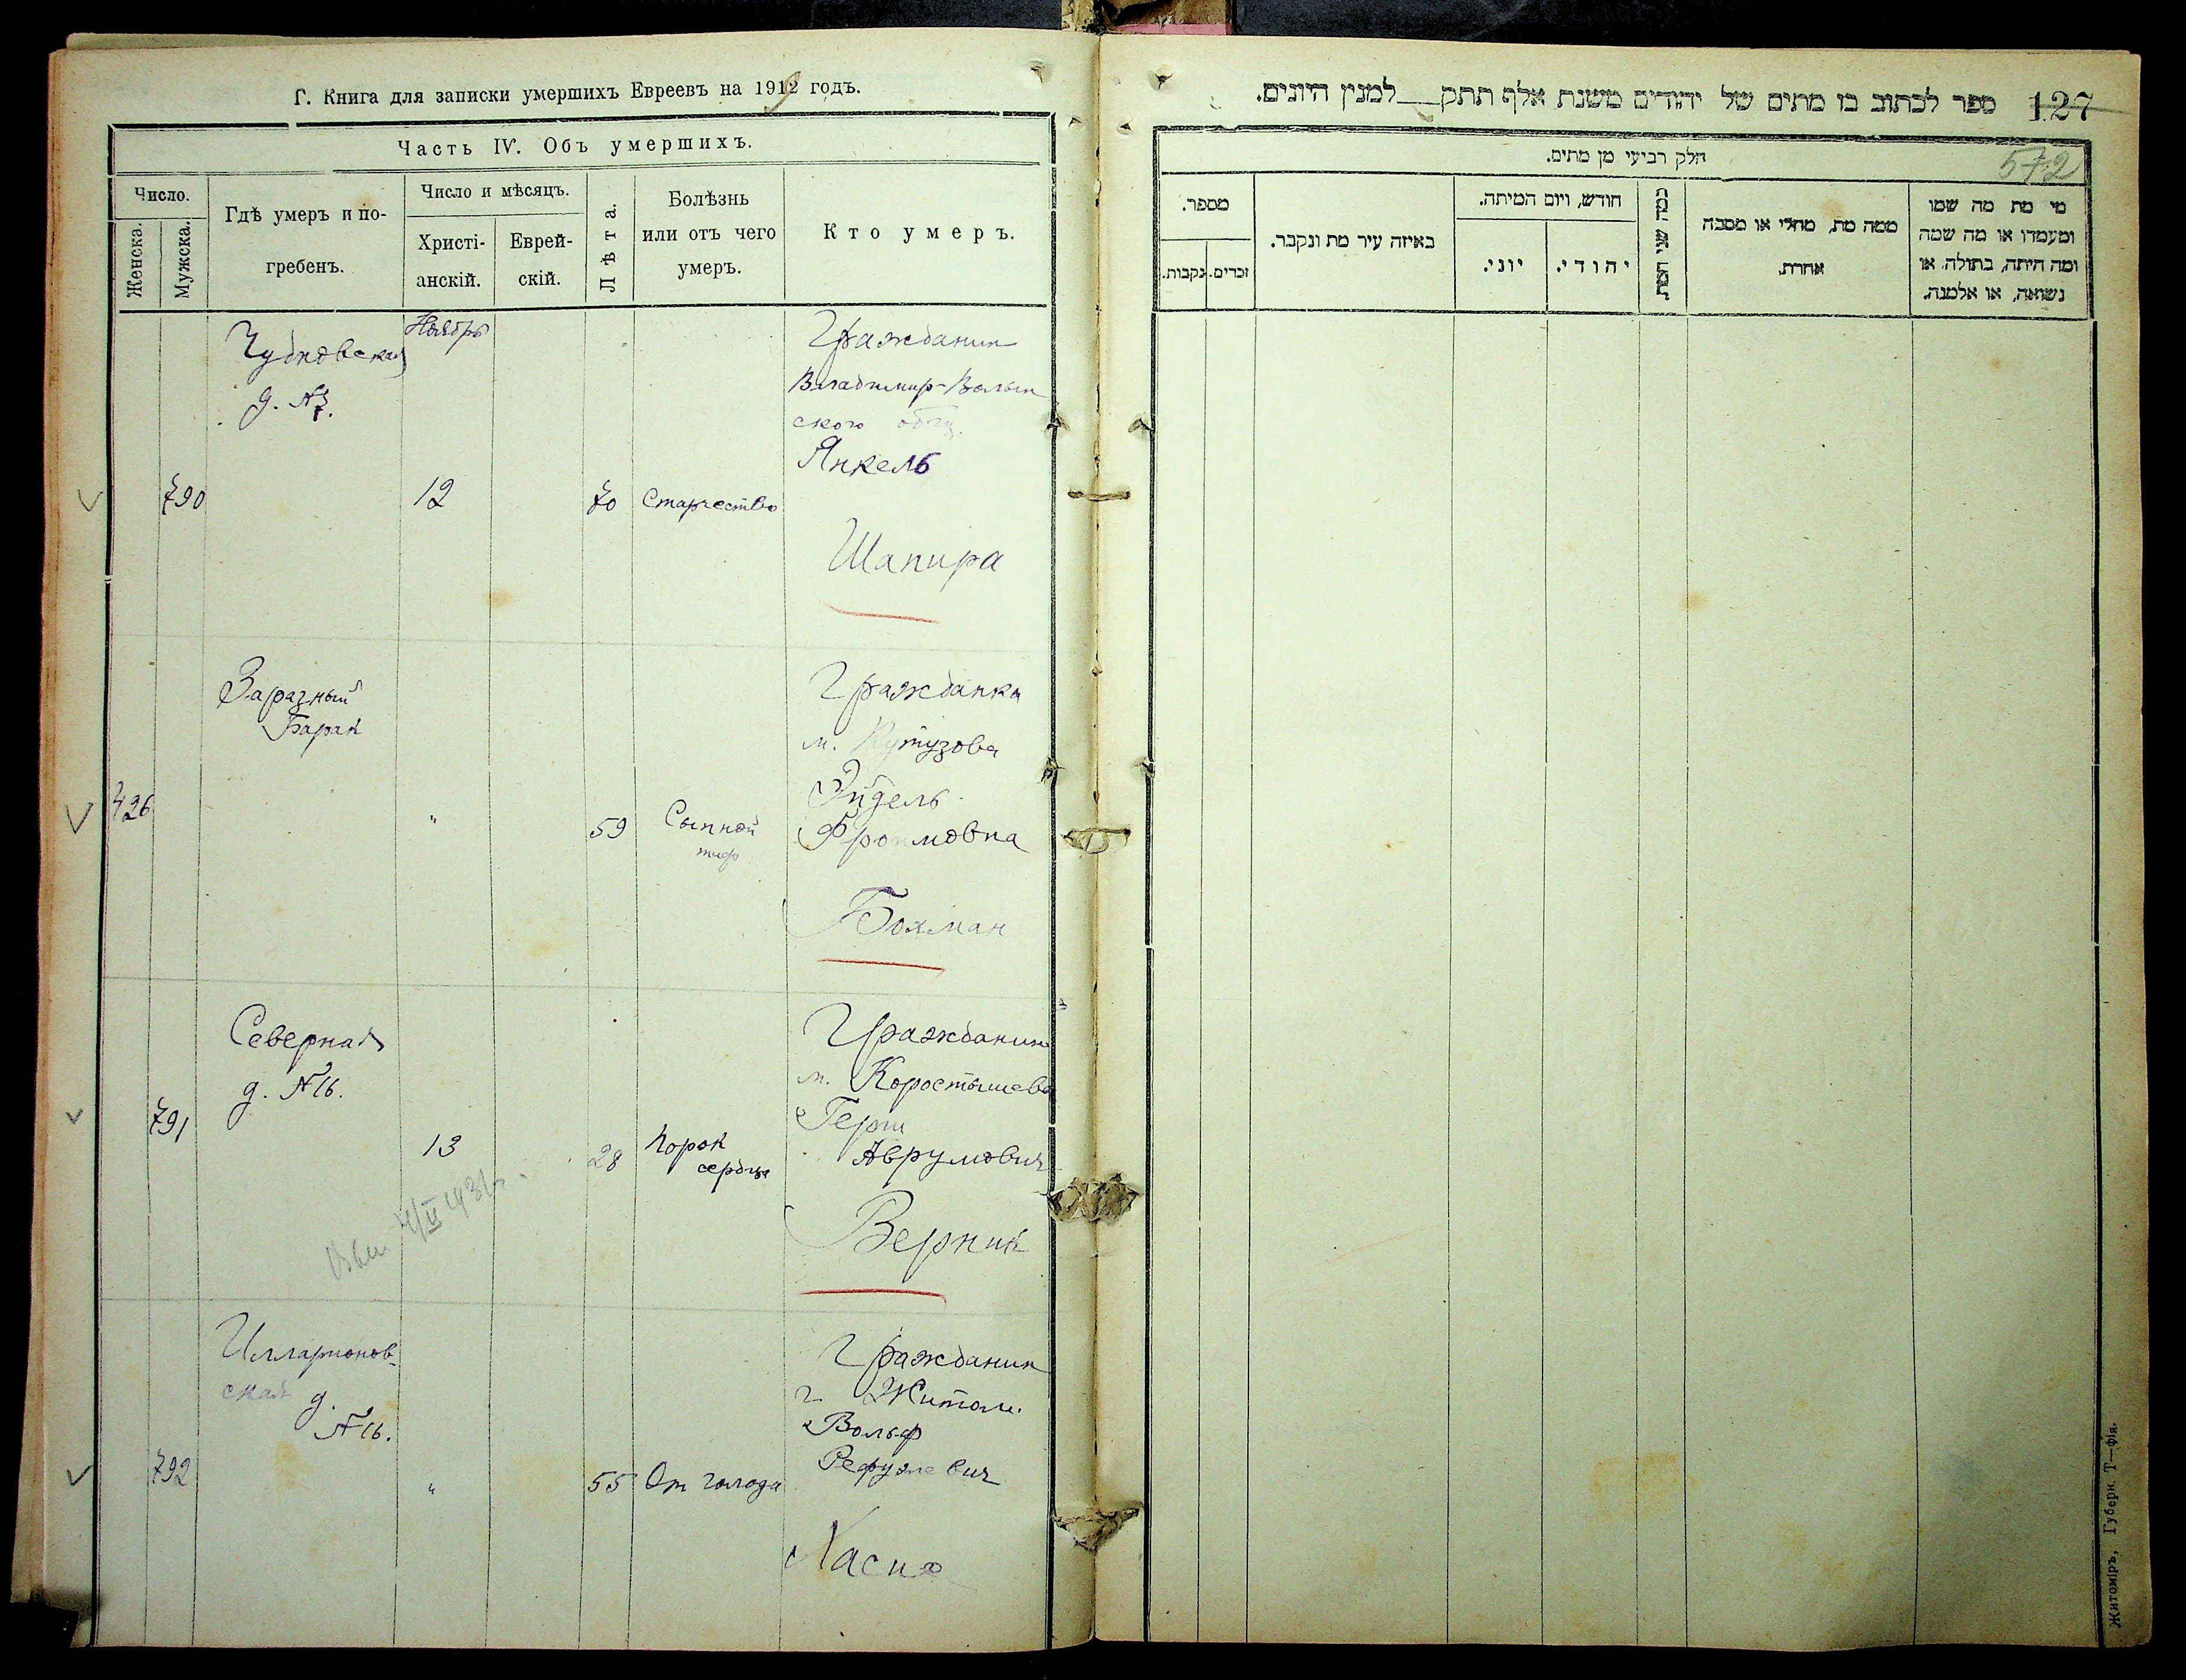 Г. Книга для записки умершихъ Евреевъ на 1919 годъ.
Часть IV. Объ умершихъ.
Число.
Женска.
Мужска.
Гдѣ умеръ и по-
гребенъ.
Число и мѣсяцъ.
Христі-
анскій.
Еврей-
скій.
Лѣта.
Болѣзнь
или отъ чего
умеръ.
Кто умеръ.
Чудновская
д. №7.
Ноябрь
790
12
70
Старчество
Гражданин
Владимир-Волын
ского общ.
Янкель
Шапира
Заразный
Барак
426
"
59
Сыпной
тиф
Гражданка
м. Кутузова
Эйдель
Фроимовна
Бохман
Северная
д. №16.
791
13
28
Порок
сердца
Гражданин
м. Коростышева
Герш
Аврумович
Верник
Илларионов-
ская д.
№16.
792
"
55
От голода
Гражданин
г. Житом.
Вольф
Хасис
ספר לכתוב בו מתים של יהודים משנת אלף תתק למנין היונים.
127
572
חלק רביעי מן מתים.
מספר.
זכרים.
נקבות.
באיזה עיר מת ונקבר.
חודש, ויום המיתה.
יוני.
יהודי.
כמה שני המת
ממה מת, מחלי או מסבה
אחרת.
מי מת מה שמו
ומעמדו או מה שמה
ומה היתה, בתולה או
נשואה, או אלמנה.
Житоміръ, Губерн. Т—фія.